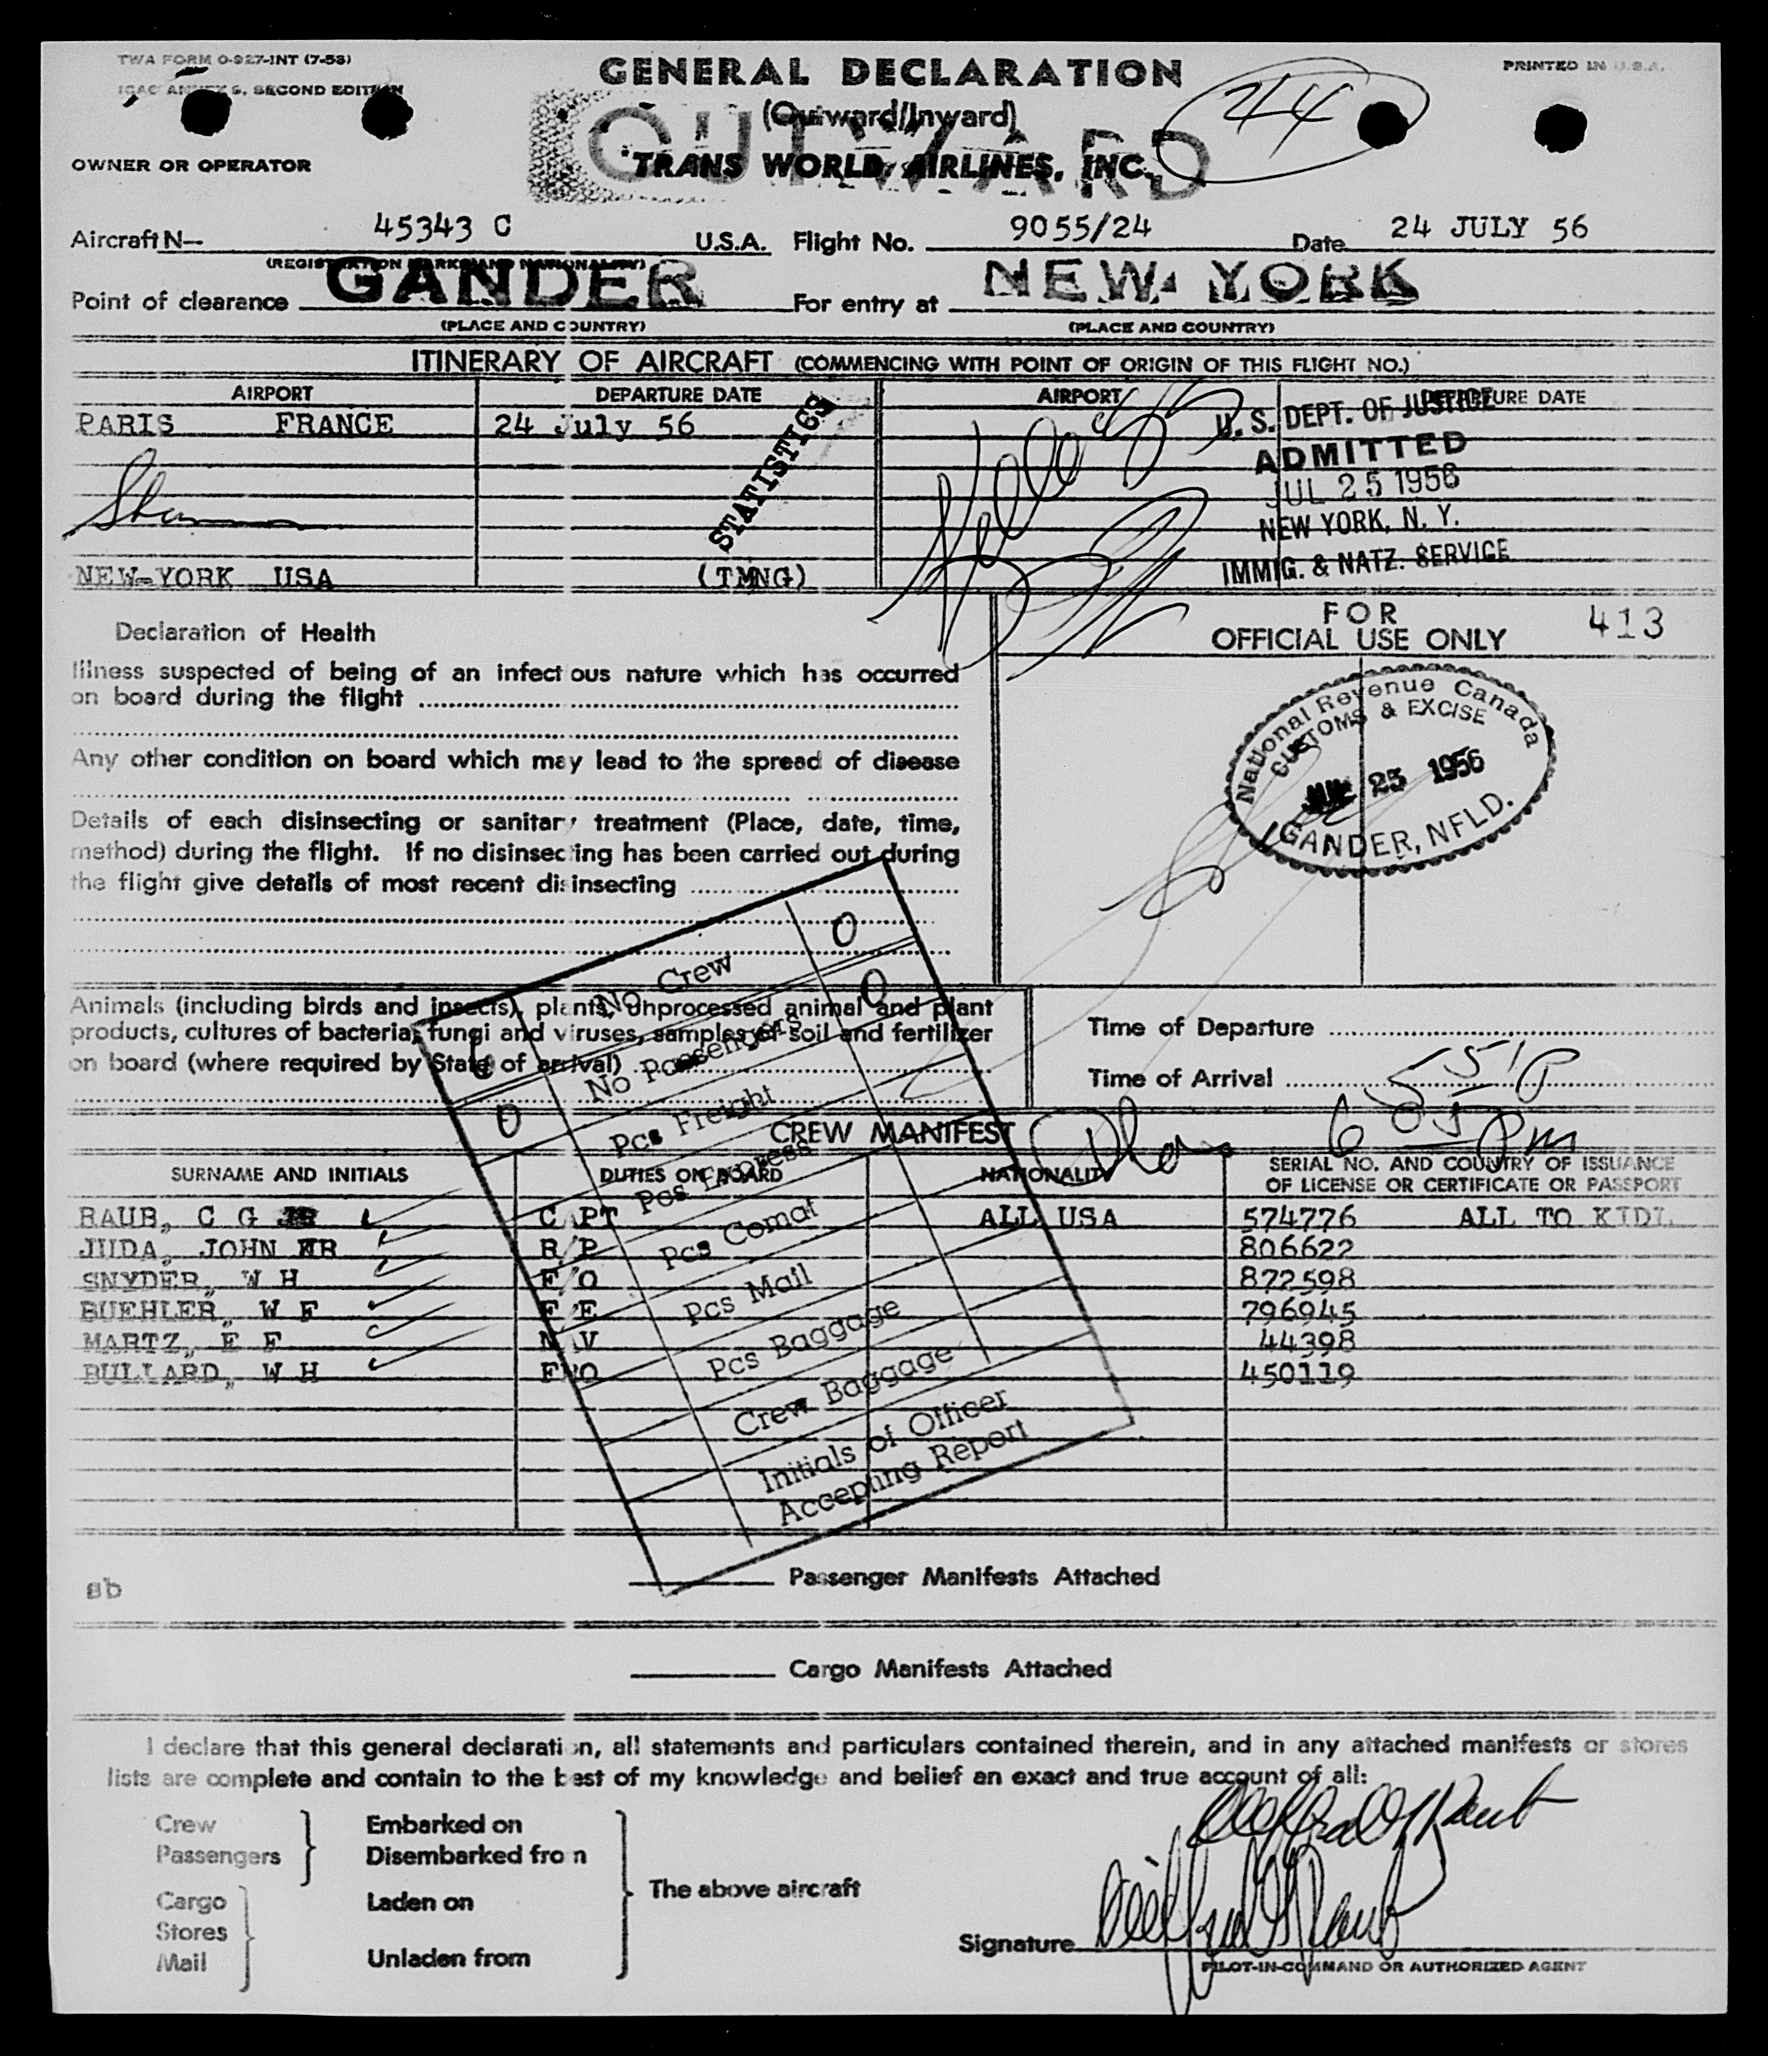 TWA FORM O-927-INT (7-53)
GENERAL DECLARATION
PRINTED IN U.S.A.
ICAO ANNEX 9, SECOND EDITION
(Outward/Inward)
24
OUTWARD
OWNER OR OPERATOR
TRANS WORLD AIRLINES, INC.
Aircraft N— 45343 C U.S.A. Flight No. 9055/24 Date 24 JULY 56
(REGISTRATION MARKS AND NATIONALITY)
Point of clearance GANDER For entry at NEW YORK
(PLACE AND COUNTRY) (PLACE AND COUNTRY)
ITINERARY OF AIRCRAFT (COMMENCING WITH POINT OF ORIGIN OF THIS FLIGHT NO.)
AIRPORT DEPARTURE DATE AIRPORT DEPARTURE DATE
PARIS FRANCE 24 July 56
STATISTICS
U. S. DEPT. OF JUSTICE
ADMITTED
JUL 25 1956
NEW YORK, N. Y.
IMMIG. & NATZ. SERVICE
NEW-YORK USA (TMNG)
Declaration of Health
FOR
OFFICIAL USE ONLY
413
Illness suspected of being of an infectious nature which has occurred
on board during the flight
Any other condition on board which may lead to the spread of disease
Details of each disinsecting or sanitary treatment (Place, date, time,
method) during the flight. If no disinsecting has been carried out during
the flight give details of most recent disinsecting
National Revenue Canada
CUSTOMS & EXCISE
JUL 25 1956
GANDER, NFLD.
Animals (including birds and insects), plants, unprocessed animal and plant
products, cultures of bacteria, fungi and viruses, samples of soil and fertilizer
on board (where required by State of arrival)
Time of Departure
Time of Arrival 551P
605 pm
No Crew 0
6 No Passengers 0
0 Pcs Freight
Pcs Express
Pcs Comat
Pcs Mail
Pcs Baggage
Crew Baggage
Initials of Officer
Accepting Report
CREW MANIFEST
SURNAME AND INITIALS DUTIES ON BOARD NATIONALITY SERIAL NO. AND COUNTRY OF ISSUANCE
OF LICENSE OR CERTIFICATE OR PASSPORT
RAUB, C G CAPT ALL USA 574776 ALL TO KIDL
JUDA, JOHN R/P 806622
SNYDER, W H F/O 872598
BUEHLER, W F F/E 796945
MARTZ, E F NAV 44398
BULLARD, W H FRO 450119
Passenger Manifests Attached
sb
Cargo Manifests Attached
I declare that this general declaration, all statements and particulars contained therein, and in any attached manifests or stores
lists are complete and contain to the best of my knowledge and belief an exact and true account of all:
Crew
Passengers
Embarked on
Disembarked from
Cargo
Stores
Mail
Laden on
Unladen from
The above aircraft
Signature
PILOT-IN-COMMAND OR AUTHORIZED AGENT